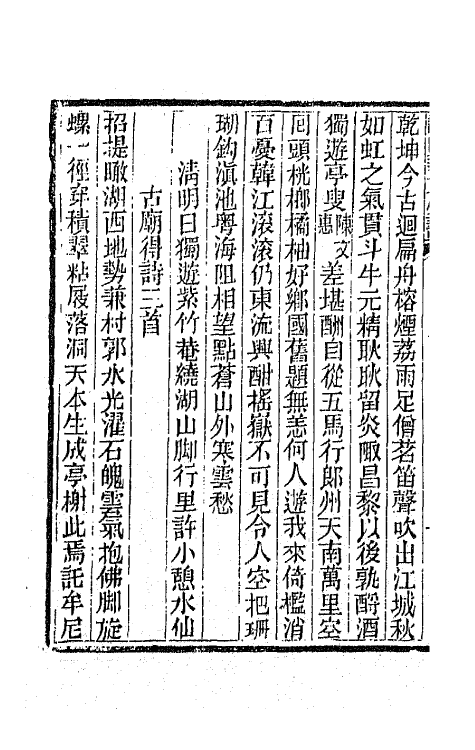 乾坤今古迴扁舟榕煙荔雨足僧茗笛聲吹出江城秋
如虹之氣貫斗牛元精耿耿留炎陬昌黎以後孰酹酒
獨遊亭叟陳文惠差堪酬自從五馬行郞州天南萬里空
回頭桄榔橘柚好鄉國舊題無恙何人遊我來倚檻消
百憂韓江滚滚仍東流興酣搖嶽不可見令人空把珊
瑚鈎滇池粤海阻相望點蒼山外寒雲愁
淸明日獨遊紫竹菴繞湖山脚行里許小憩水仙
古廟得詩三首
招提瞰湖西地勢兼村郭水光濯石魄雲氣抱佛脚旋
螺一徑穿積翠粘屐落洞天本生成亭榭此焉託牟尼